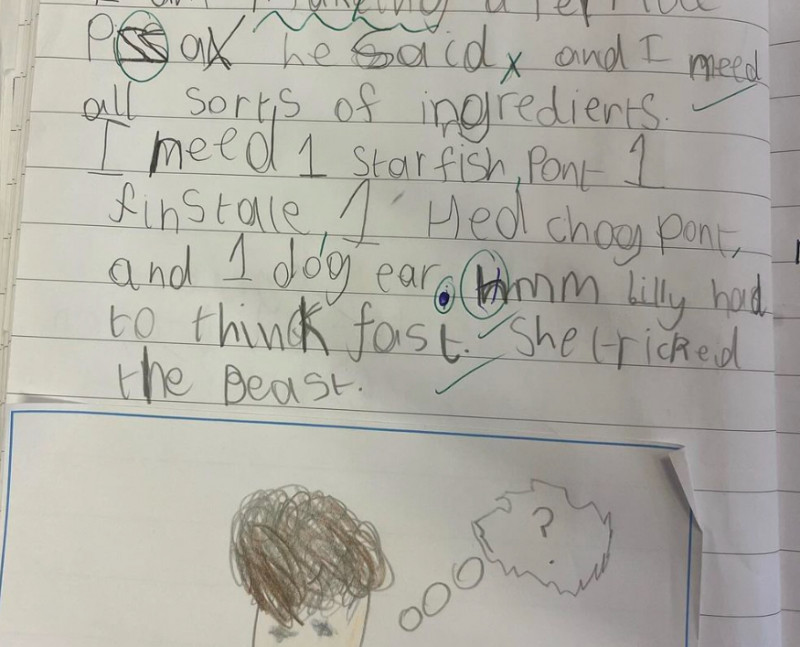 making a
he said and I need
all sorts of ingredients.
I need 1 starfish, Pont 1
finstale, 1 Hed choog pont,
and 1 dog ear. Hmm billy had
to think fast. She tricked
the Beast.
?